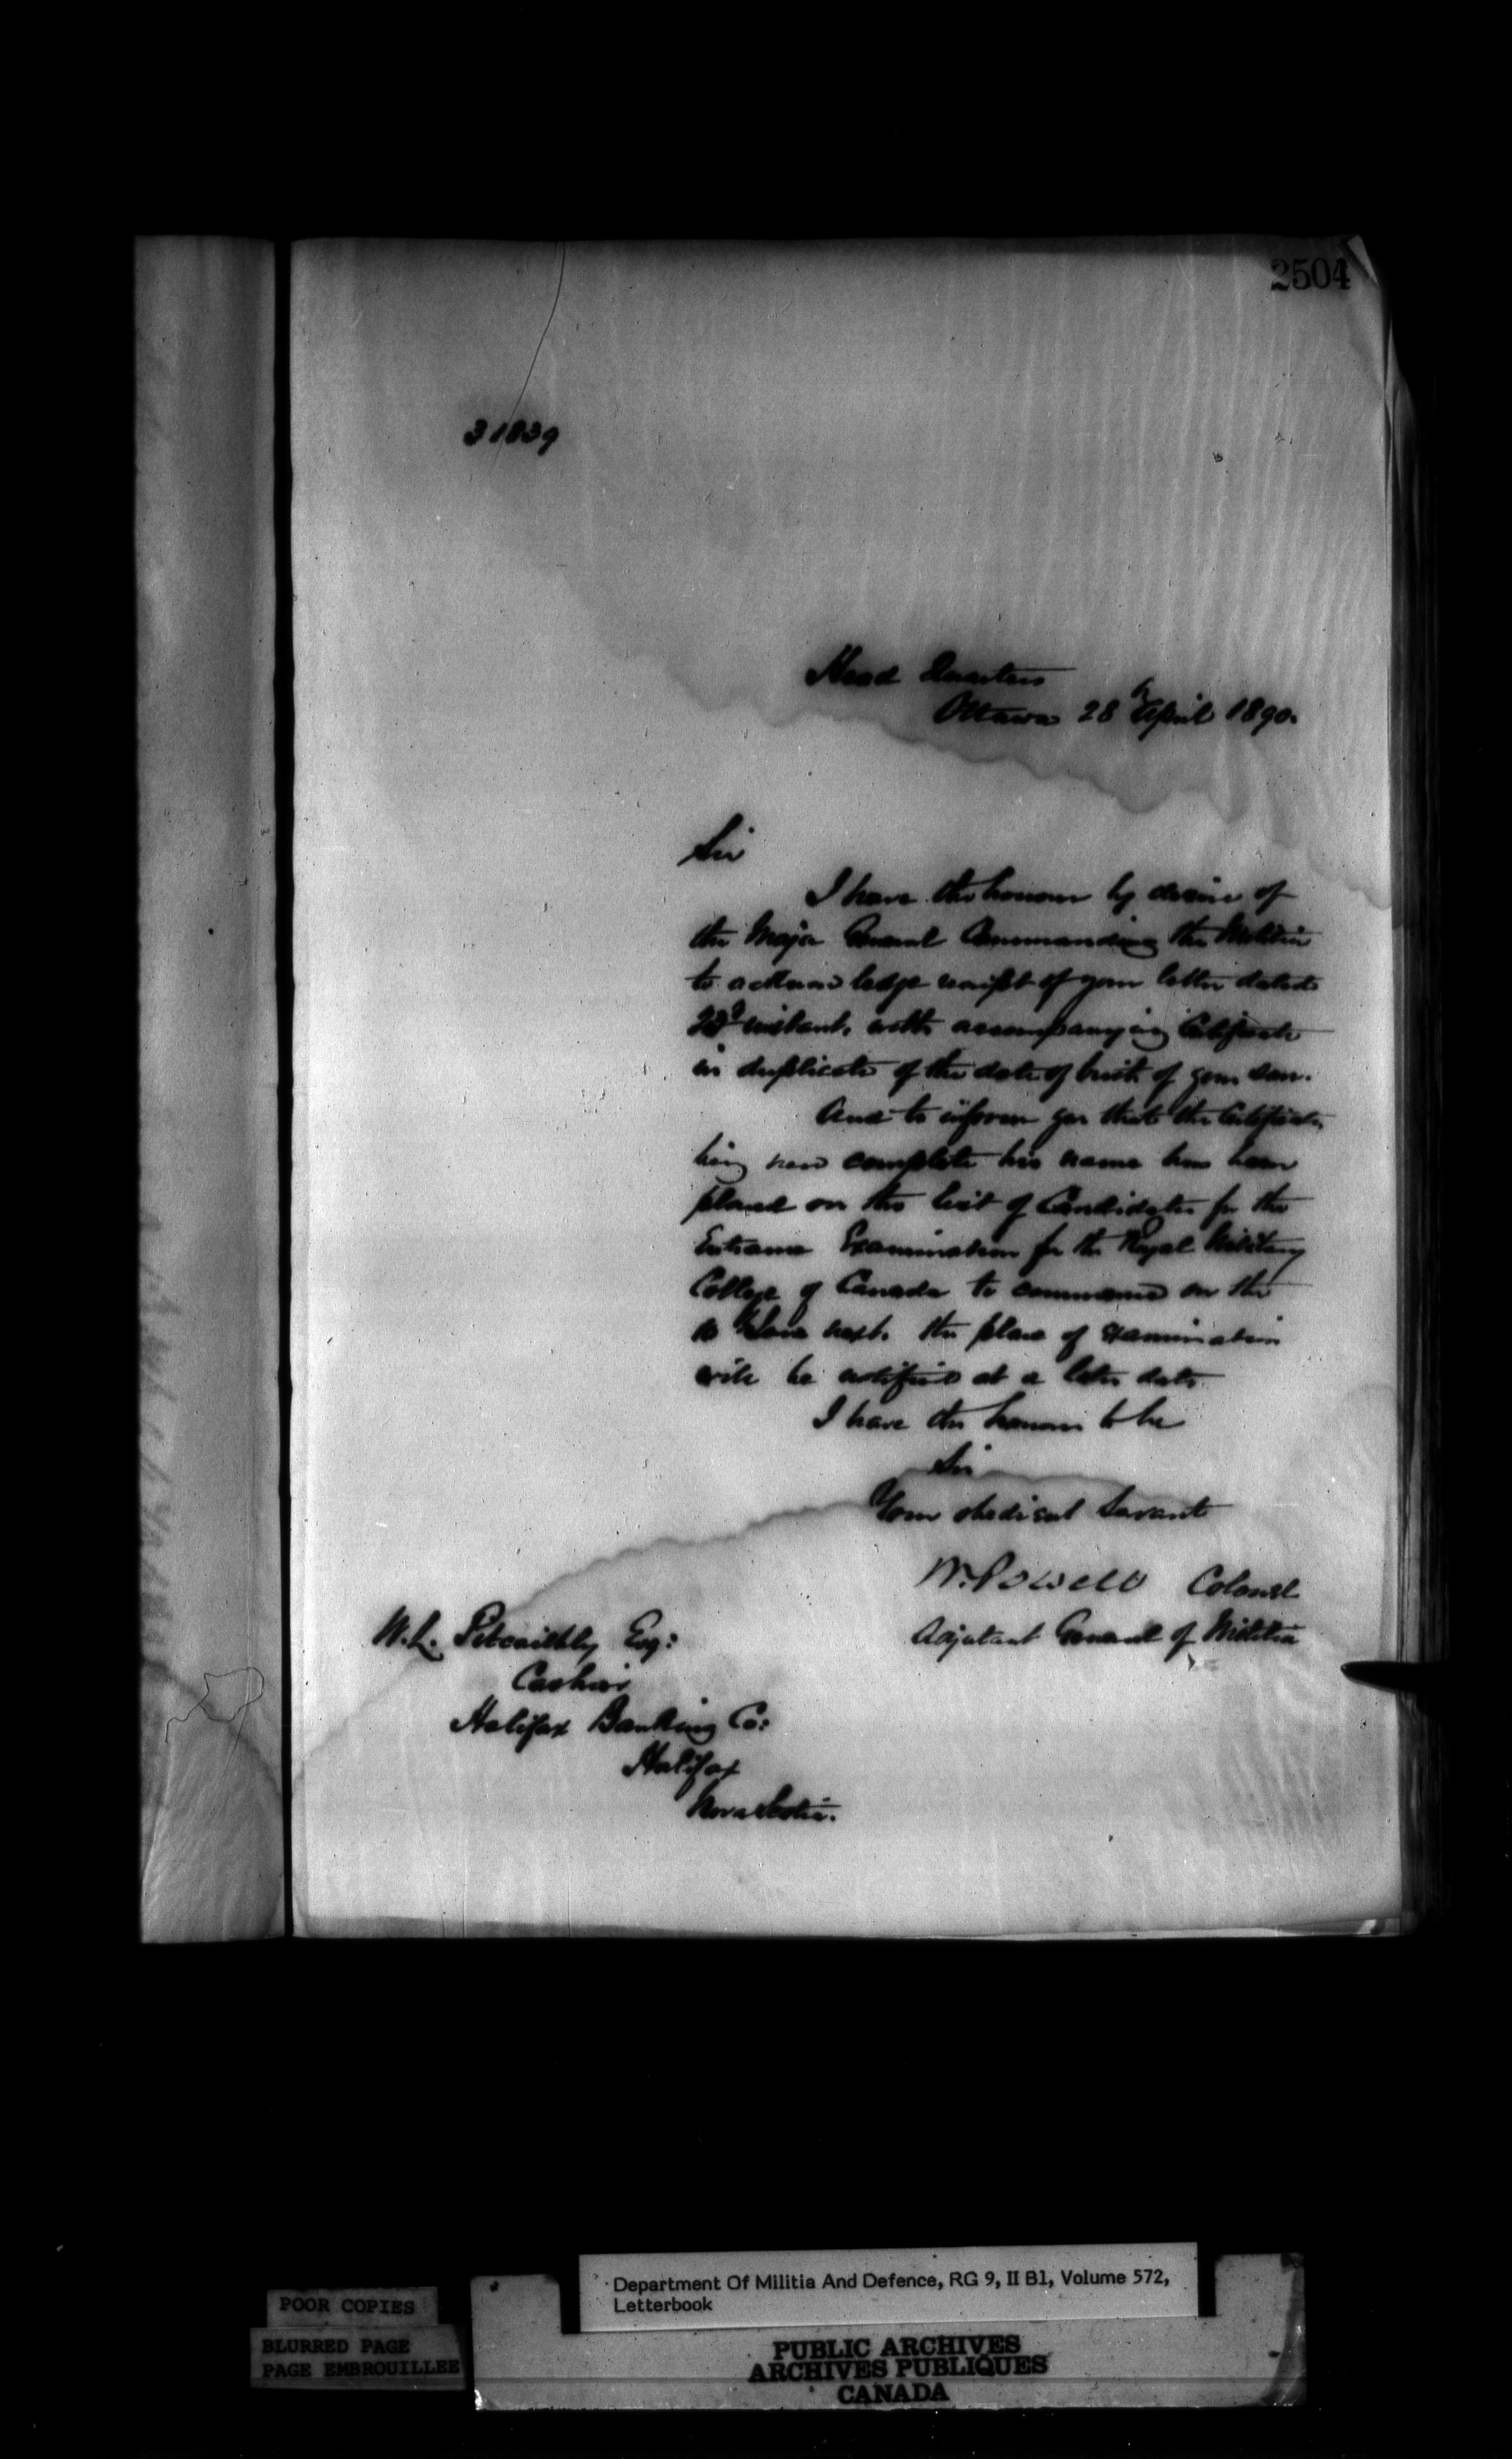 2504
31839
Head Quarters
Ottawa 28th April 1890.
Sir
I have the honour by desire of
the Major General Commanding the Militia
to acknowledge receipt of your letter dated
23d instant, with accompanying Certificate
in duplicate of the date of birth of your son.
And to inform you that the Certificates
being now complete his name has been
placed on the list of Candidates for the
Entrance Examination for the Royal Military
College of Canada to commence on the
10 June next. the place of examination
will be notified at a later date.
I have the honour to be
Sir
Your obedient Servant
W. Powell Colonel
Adjutant General of Militia
W.L. Pitcaithly Esq:
Cashier
Halifax Banking Co:
Halifax
Nova Scotia.
Department Of Militia And Defence, RG 9, II B1, Volume 572,
Letterbook
POOR COPIES
BLURRED PAGE
PAGE EMBROUILLEE
PUBLIC ARCHIVES
ARCHIVES PUBLIQUES
CANADA